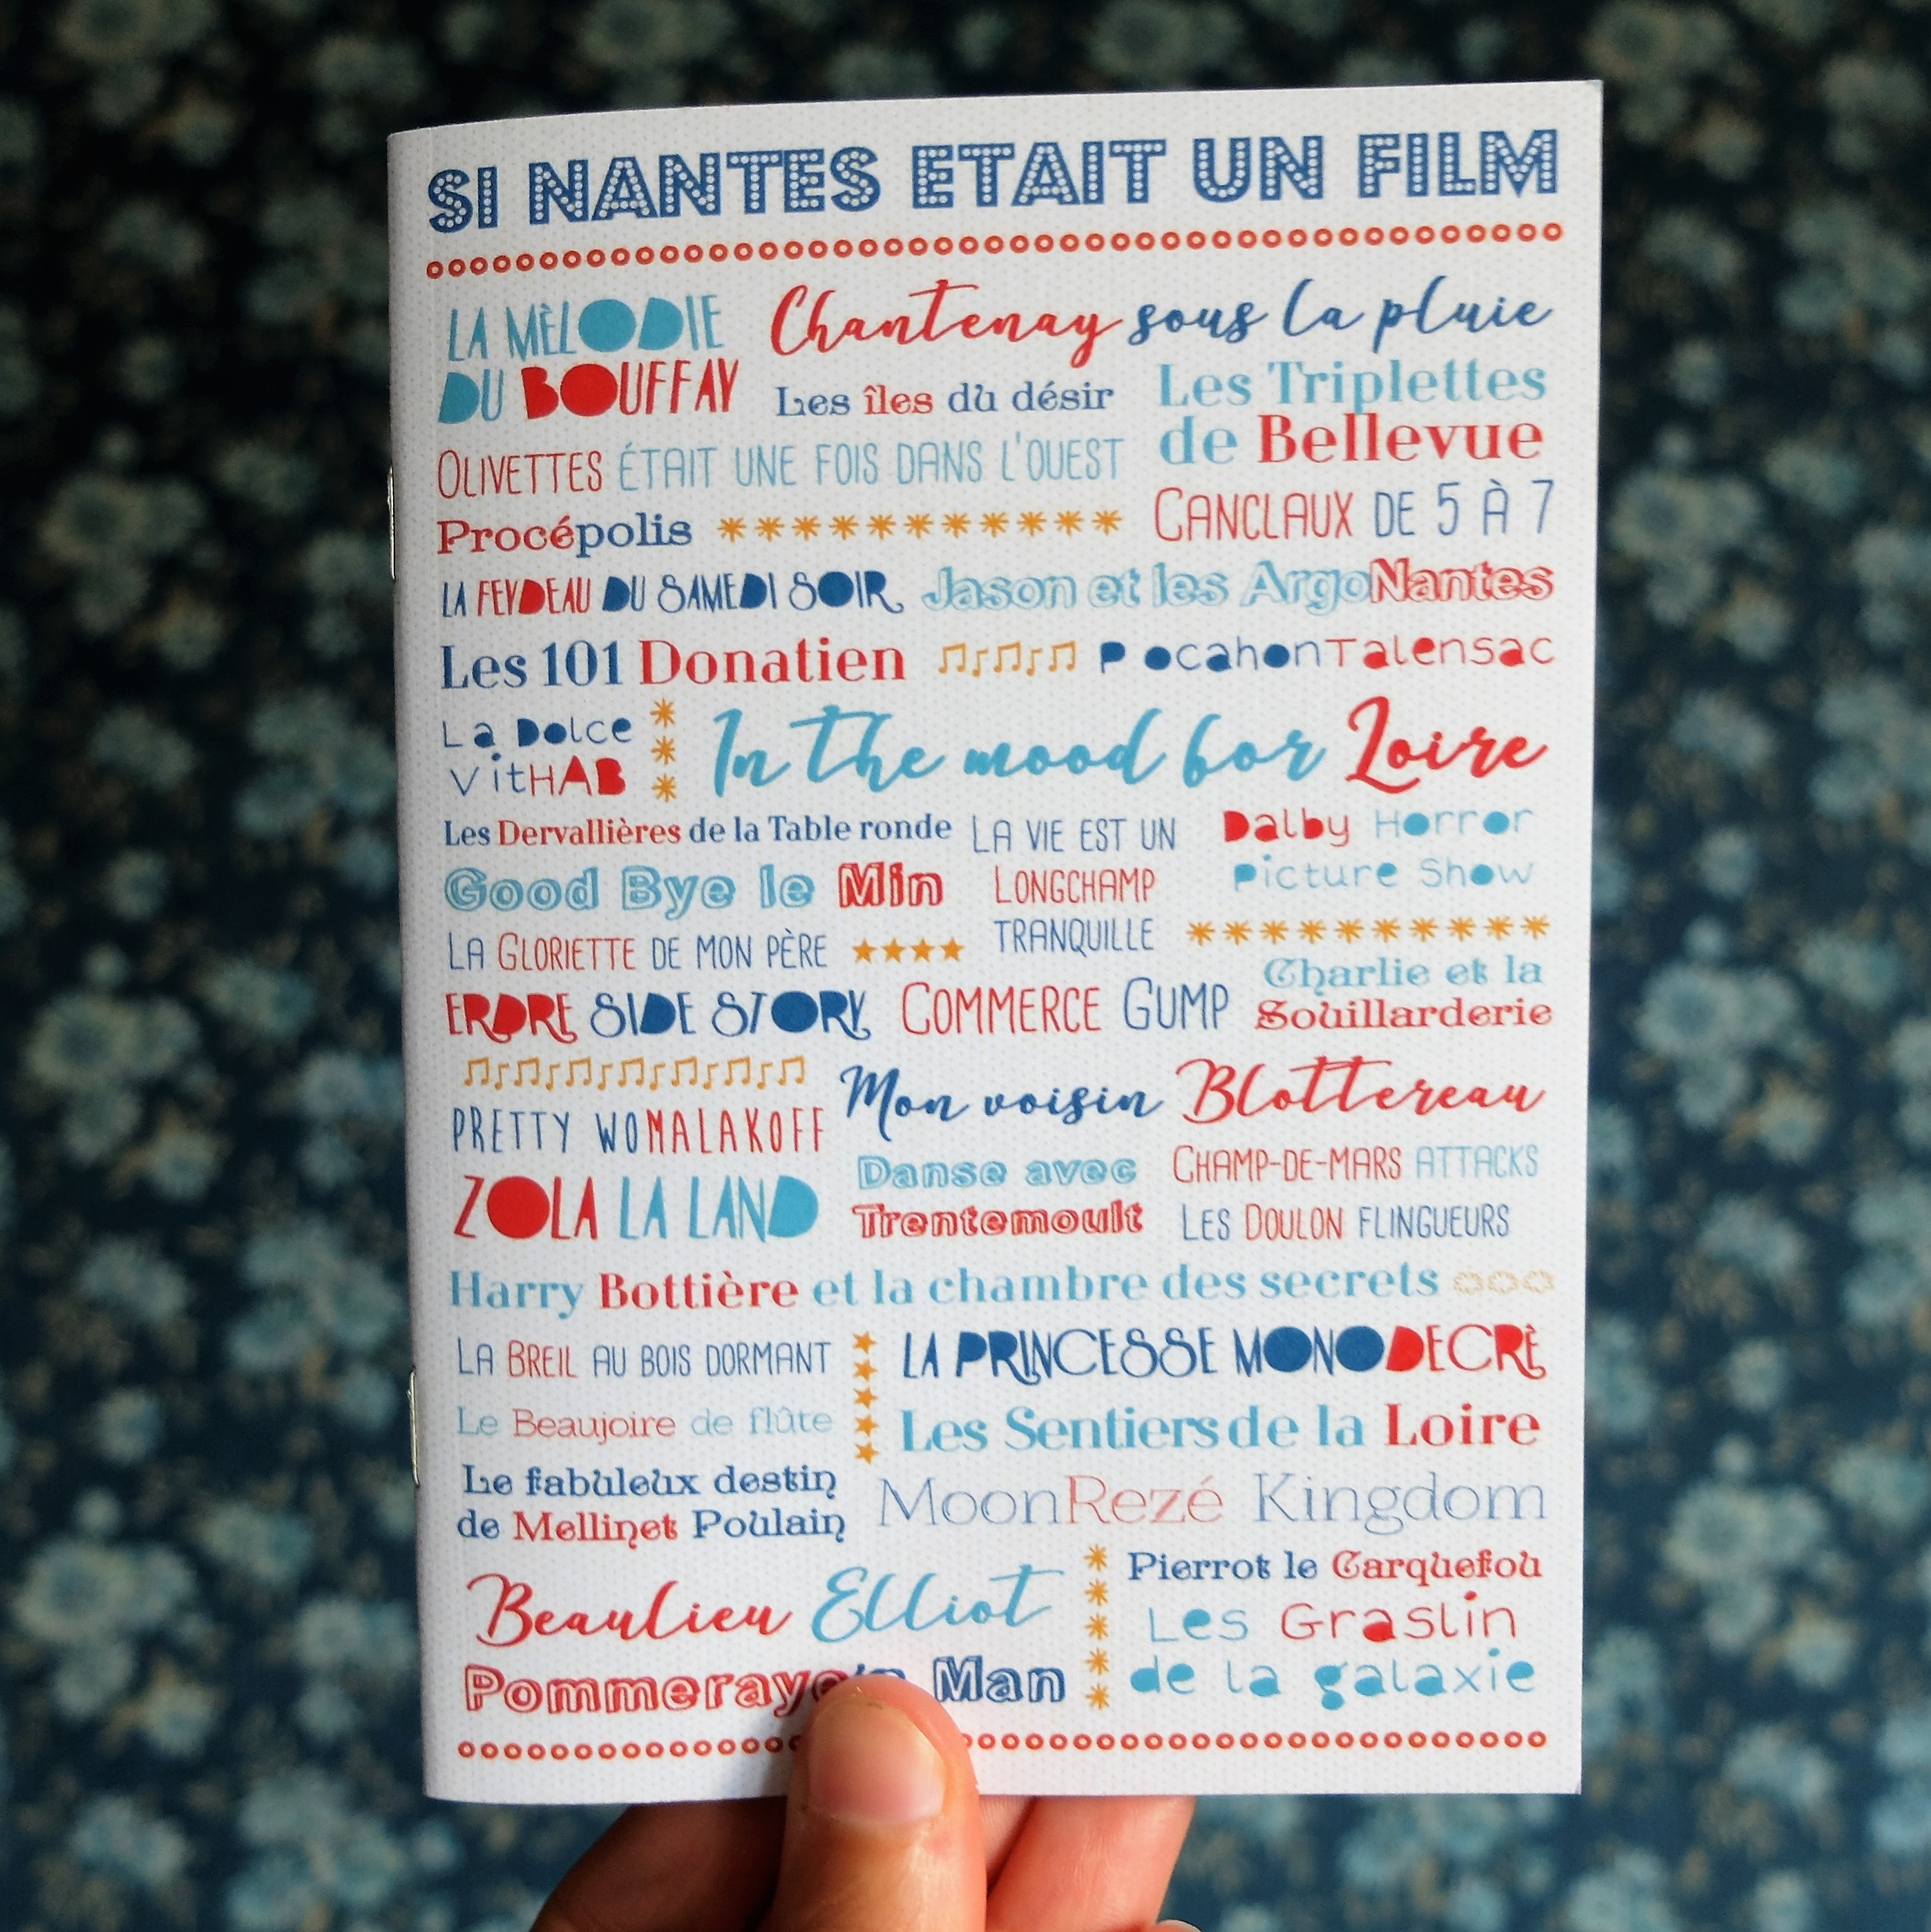 SI NANTES ETAIT UN FILM
LA MÈLODIE
DU BOUFFAY
Chantenay sous la pluie
Les îles du désir
Les Triplettes
de Bellevue
OLIVETTES ÉTAIT UNE FOIS DANS L'OUEST
Procépolis
CANCLAUX DE 5 À 7
LA FEYDEAU DU SAMEDI SOIR
Jason et les ArgoNantes
Les 101 Donatien
PocahonTalensac
La Dolce
VitHAB
In the mood for Loire
Les Dervallières de la Table ronde
LA VIE EST UN
LONGCHAMP
TRANQUILLE
Dalby Horror
Picture Show
Good Bye le Min
LA GLORIETTE DE MON PÈRE
ERDRE SIDE STORY
COMMERCE GUMP
Charlie et la
Souillarderie
PRETTY WOMALAKOFF
Mon voisin Blottereau
ZOLA LA LAND
Danse avec
Trentemoult
CHAMP-DE-MARS ATTACKS
LES DOULON FLINGUEURS
Harry Bottière et la chambre des secrets
LA BREIL AU BOIS DORMANT
LA PRINCESSE MONODECRÈ
Le Beaujoire de flûte
Les Sentiers de la Loire
Le fabuleux destin
de Mellinet Poulain
MoonRezé Kingdom
Beaulieu Elliot
Pierrot le Carquefou
Les Graslin
de la galaxie
Man